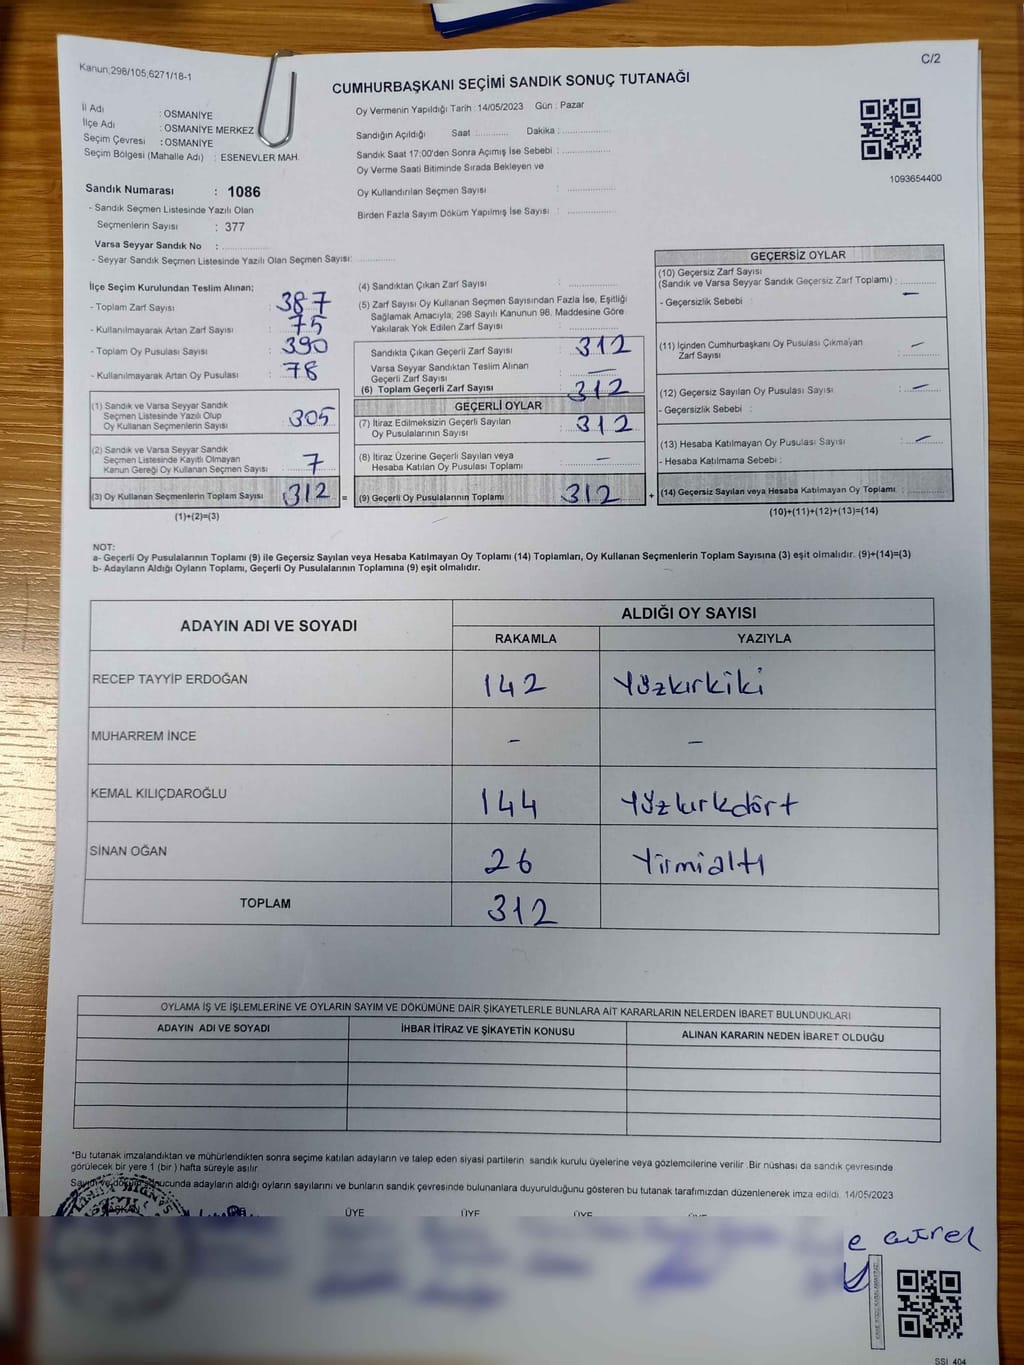 Kanun;298/105,6271/18-1
C/2
CUMHURBAŞKANI SEÇİMİ SANDIK SONUÇ TUTANAĞI
İl Adı : OSMANİYE
İlçe Adı : OSMANİYE MERKEZ
Seçim Çevresi : OSMANİYE
Seçim Bölgesi (Mahalle Adı) : ESENEVLER MAH.
Sandık Numarası : 1086
- Sandık Seçmen Listesinde Yazılı Olan
Seçmenlerin Sayısı : 377
Varsa Seyyar Sandık No : ............
- Seyyar Sandık Seçmen Listesinde Yazılı Olan Seçmen Sayısı: ............
Oy Vermenin Yapıldığı Tarih : 14/05/2023 Gün : Pazar
Sandığın Açıldığı Saat :........... Dakika :...............
Sandık Saat 17:00'den Sonra Açımış İse Sebebi :...............
Oy Verme Saati Bitiminde Sırada Bekleyen ve
Oy Kullandırılan Seçmen Sayısı : ...............
Birden Fazla Sayım Döküm Yapılmış İse Sayısı : ...............
1093654400
İlçe Seçim Kurulundan Teslim Alınan;
- Toplam Zarf Sayısı : 387
- Kullanılmayarak Artan Zarf Sayısı : 75
- Toplam Oy Pusulası Sayısı : 390
- Kullanılmayarak Artan Oy Pusulası : 78
(1) Sandık ve Varsa Seyyar Sandık
Seçmen Listesinde Yazılı Olup
Oy Kullanan Seçmenlerin Sayısı : 305
(2) Sandık ve Varsa Seyyar Sandık
Seçmen Listesinde Kayıtlı Olmayan
Kanun Gereği Oy Kullanan Seçmen Sayısı : 7
(3) Oy Kullanan Seçmenlerin Toplam Sayısı : 312 =
(1)+(2)=(3)
(4) Sandıktan Çıkan Zarf Sayısı : ...............
(5) Zarf Sayısı Oy Kullanan Seçmen Sayısından Fazla İse, Eşitliği
Sağlamak Amacıyla; 298 Sayılı Kanunun 98. Maddesine Göre
Yakılarak Yok Edilen Zarf Sayısı : ...............
Sandıkta Çıkan Geçerli Zarf Sayısı : 312
Varsa Seyyar Sandıktan Teslim Alınan
Geçerli Zarf Sayısı : —
(6) Toplam Geçerli Zarf Sayısı : 312
GEÇERLİ OYLAR
(7) İtiraz Edilmeksizin Geçerli Sayılan
Oy Pusulalarının Sayısı : 312
(8) İtiraz Üzerine Geçerli Sayılan veya
Hesaba Katılan Oy Pusulası Toplamı : —
(9) Geçerli Oy Pusulalarının Toplamı : 312 +
GEÇERSİZ OYLAR
(10) Geçersiz Zarf Sayısı
(Sandık ve Varsa Seyyar Sandık Geçersiz Zarf Toplamı) : ............
- Geçersizlik Sebebi : —
(11) İçinden Cumhurbaşkanı Oy Pusulası Çıkmayan
Zarf Sayısı : —
(12) Geçersiz Sayılan Oy Pusulası Sayısı : —
- Geçersizlik Sebebi :
(13) Hesaba Katılmayan Oy Pusulası Sayısı : —
- Hesaba Katılmama Sebebi :
(14) Geçersiz Sayılan veya Hesaba Katılmayan Oy Toplamı : ............
(10)+(11)+(12)+(13)=(14)
NOT:
a- Geçerli Oy Pusulalarının Toplamı (9) ile Geçersiz Sayılan veya Hesaba Katılmayan Oy Toplamı (14) Toplamları, Oy Kullanan Seçmenlerin Toplam Sayısına (3) eşit olmalıdır. (9)+(14)=(3)
b- Adayların Aldığı Oyların Toplamı, Geçerli Oy Pusulalarının Toplamına (9) eşit olmalıdır.
ADAYIN ADI VE SOYADI ALDIĞI OY SAYISI
RAKAMLA YAZIYLA
RECEP TAYYİP ERDOĞAN 142 Yüzkırkiki
MUHARREM İNCE - —
KEMAL KILIÇDAROĞLU 144 Yüzkırkdört
SİNAN OĞAN 26 Yirmialtı
TOPLAM 312
OYLAMA İŞ VE İŞLEMLERİNE VE OYLARIN SAYIM VE DÖKÜMÜNE DAİR ŞİKAYETLERLE BUNLARA AİT KARARLARIN NELERDEN İBARET BULUNDUKLARI
ADAYIN ADI VE SOYADI İHBAR İTİRAZ VE ŞİKAYETİN KONUSU ALINAN KARARIN NEDEN İBARET OLDUĞU
*Bu tutanak imzalandıktan ve mühürlendikten sonra seçime katılan adayların ve talep eden siyasi partilerin sandık kurulu üyelerine veya gözlemcilerine verilir .Bir nüshası da sandık çevresinde
görülecek bir yere 1 (bir ) hafta süreyle asılır.
Sayım ve döküm sonucunda adayların aldığı oyların sayılarını ve bunların sandık çevresinde bulunanlara duyurulduğunu gösteren bu tutanak tarafımızdan düzenlenerek imza edildi. 14/05/2023
BAŞKAN ÜYE ÜYE ÜYE
SSİ 404